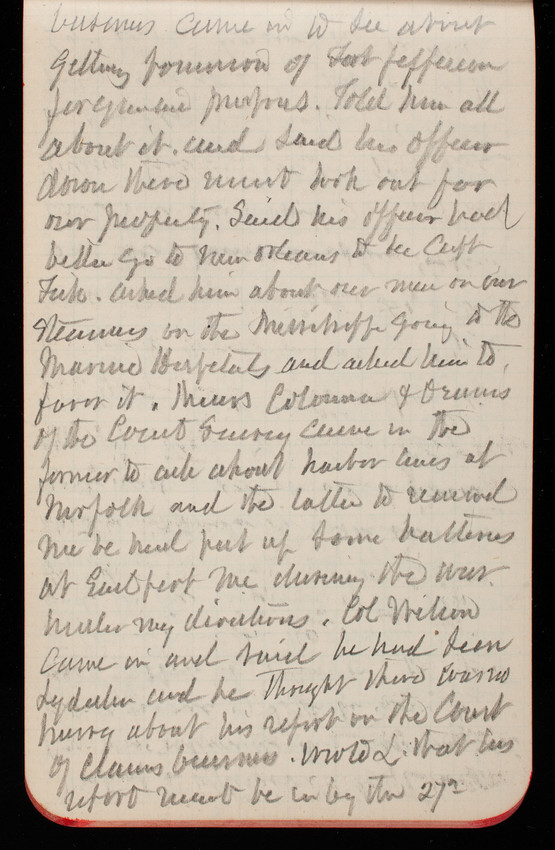 business came in to see about
getting possession of Fort Jefferson
for quarantine purposes. Told him all
about it. and said his officer
down there must look out for
our property. Said his officer had
better go to New Orleans to see Capt
Fisk. asked him about our men on our
steamers on the Mississippi going to the
Marine Hospitals and asked him to
favor it. Messrs Colonna & Dennis
of the Coast Survey came in the
former to ask about harbor lines at
Norfolk and the latter to remind
me he had put up some batteries
at Eastport Me during the war
under my directions. Col Wilson
came in and said he had seen
Lydecker and he thought there was no
hurry about his report on the Court
of Claims business. Wrote L. that his
report must be in by the 27th